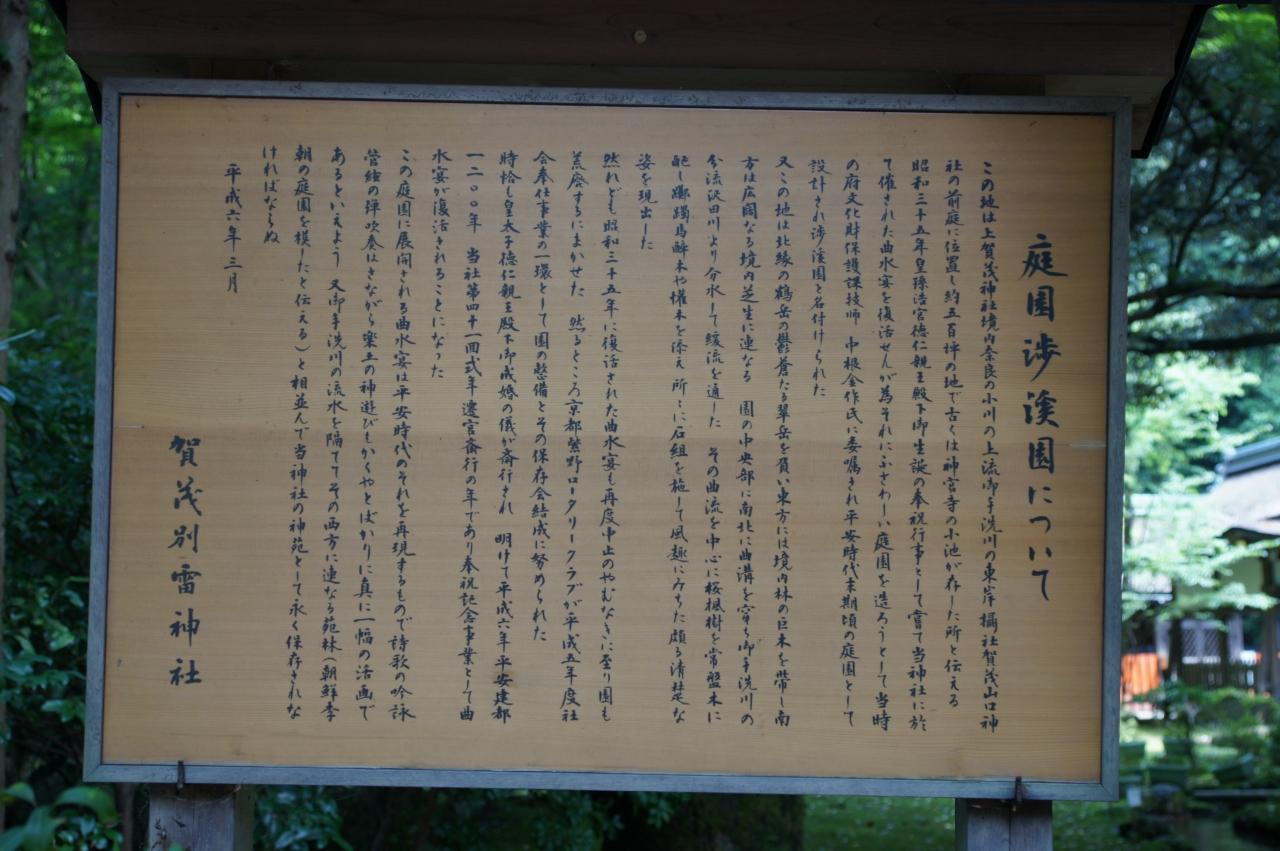 庭園渉溪園について
この地は上賀茂神社境内奈良の小川の上流御手洗川の東岸 摂社賀茂山口神
社の前庭に位置し約五百坪の地で古くは神宮寺の小池が存した所と伝える
昭和三十五年皇孫浩宮徳仁親王殿下御生誕の奉祝行事として嘗て当神社に於
て催された曲水宴を復活せんが為それにふさわしい庭園を造ろうとして当時
の府文化財保護課技師 中根金作氏に委嘱され平安時代末期頃の庭園として
設計され渉溪園と名付けられた
又この地は北縁の鶴岳の鬱蒼たる翠岳を負い東方には境内林の巨木を帯し南
方は広闊なる境内芝生に連なる 園の中央部に南北に曲溝を穿ち御手洗川の
分流沢田川より分水して緩流を通した その曲流を中心に桜楓樹を常盤木に
配し躑躅馬酔木や灌木を添え所々に石組を施して風趣にみちた頗る清楚な
姿を現出した
然れども昭和三十五年に復活された曲水宴も再度中止のやむなきに至り園も
荒廃するにまかせた 然るところ京都紫野ロータリークラブが平成五年度社
会奉仕事業の一環として園の整備とその保存会結成に努められた
時恰も皇太子徳仁親王殿下御成婚の儀が斎行され 明けて平成六年平安建都
一二〇〇年 当社第四十一回式年遷宮斎行の年であり奉祝記念事業として曲
水宴が復活されることになった
この庭園に展開される曲水宴は平安時代のそれを再現するもので詩歌の吟詠
管絃の弾吹奏はさながら楽土の神遊びもかくやとばかりに真に一幅の活画で
あるといえよう 又御手洗川の流水を隔ててその西方に連なる苑林(朝鮮李
朝の庭園を模したと伝える)と相並んで当神社の神苑として永く保存されな
ければならぬ
平成六年三月
賀茂別雷神社